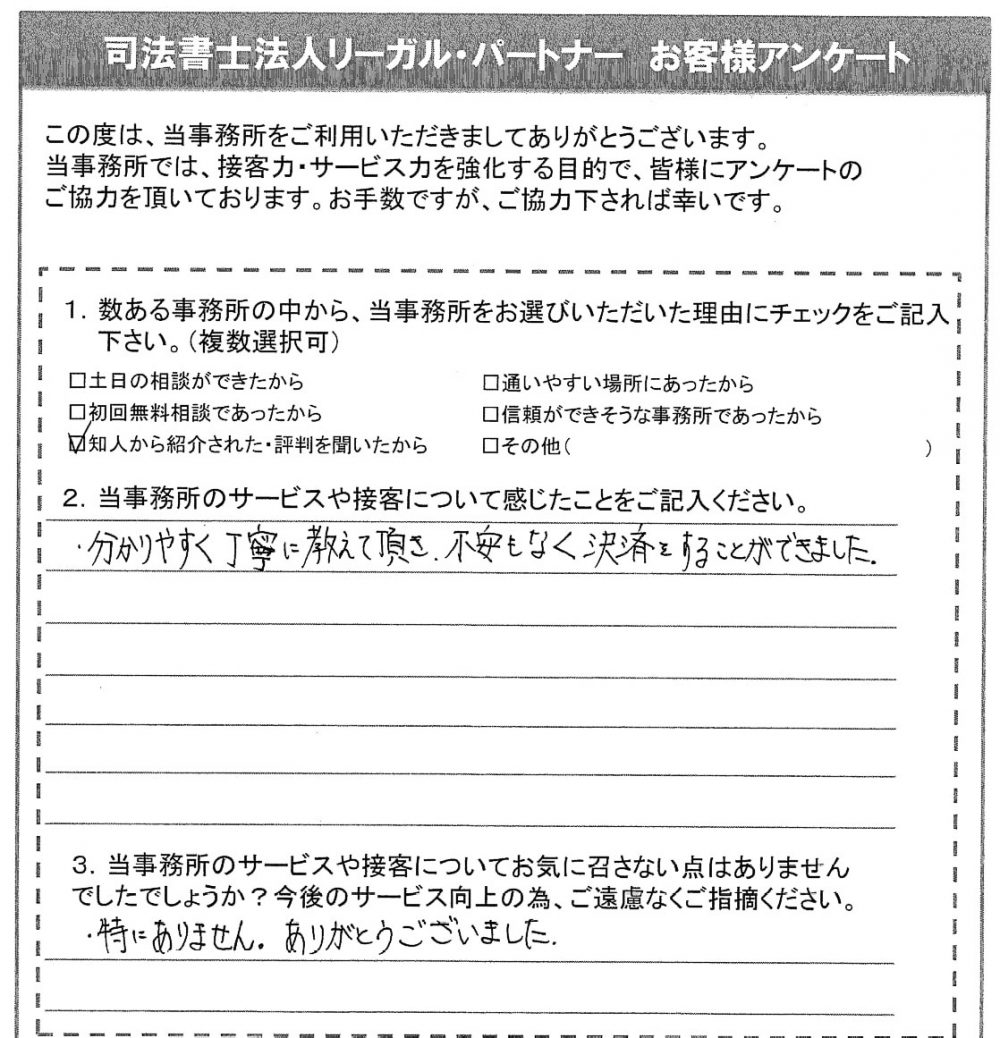 司法書士法人リーガル・パートナー お客様アンケート
この度は、当事務所をご利用いただきましてありがとうございます。
当事務所では、接客力・サービス力を強化する目的で、皆様にアンケートの
ご協力を頂いております。お手数ですが、ご協力下されば幸いです。
1. 数ある事務所の中から、当事務所をお選びいただいた理由にチェックをご記入
下さい。(複数選択可)
□土日の相談ができたから □通いやすい場所にあったから
□初回無料相談であったから □信頼ができそうな事務所であったから
☑知人から紹介された・評判を聞いたから □その他( )
2. 当事務所のサービスや接客について感じたことをご記入ください。
・分かりやすく丁寧に教えて頂き、不安もなく決済をすることができました。
3. 当事務所のサービスや接客についてお気に召さない点はありません
でしたでしょうか?今後のサービス向上の為、ご遠慮なくご指摘ください。
・特にありません。ありがとうございました。